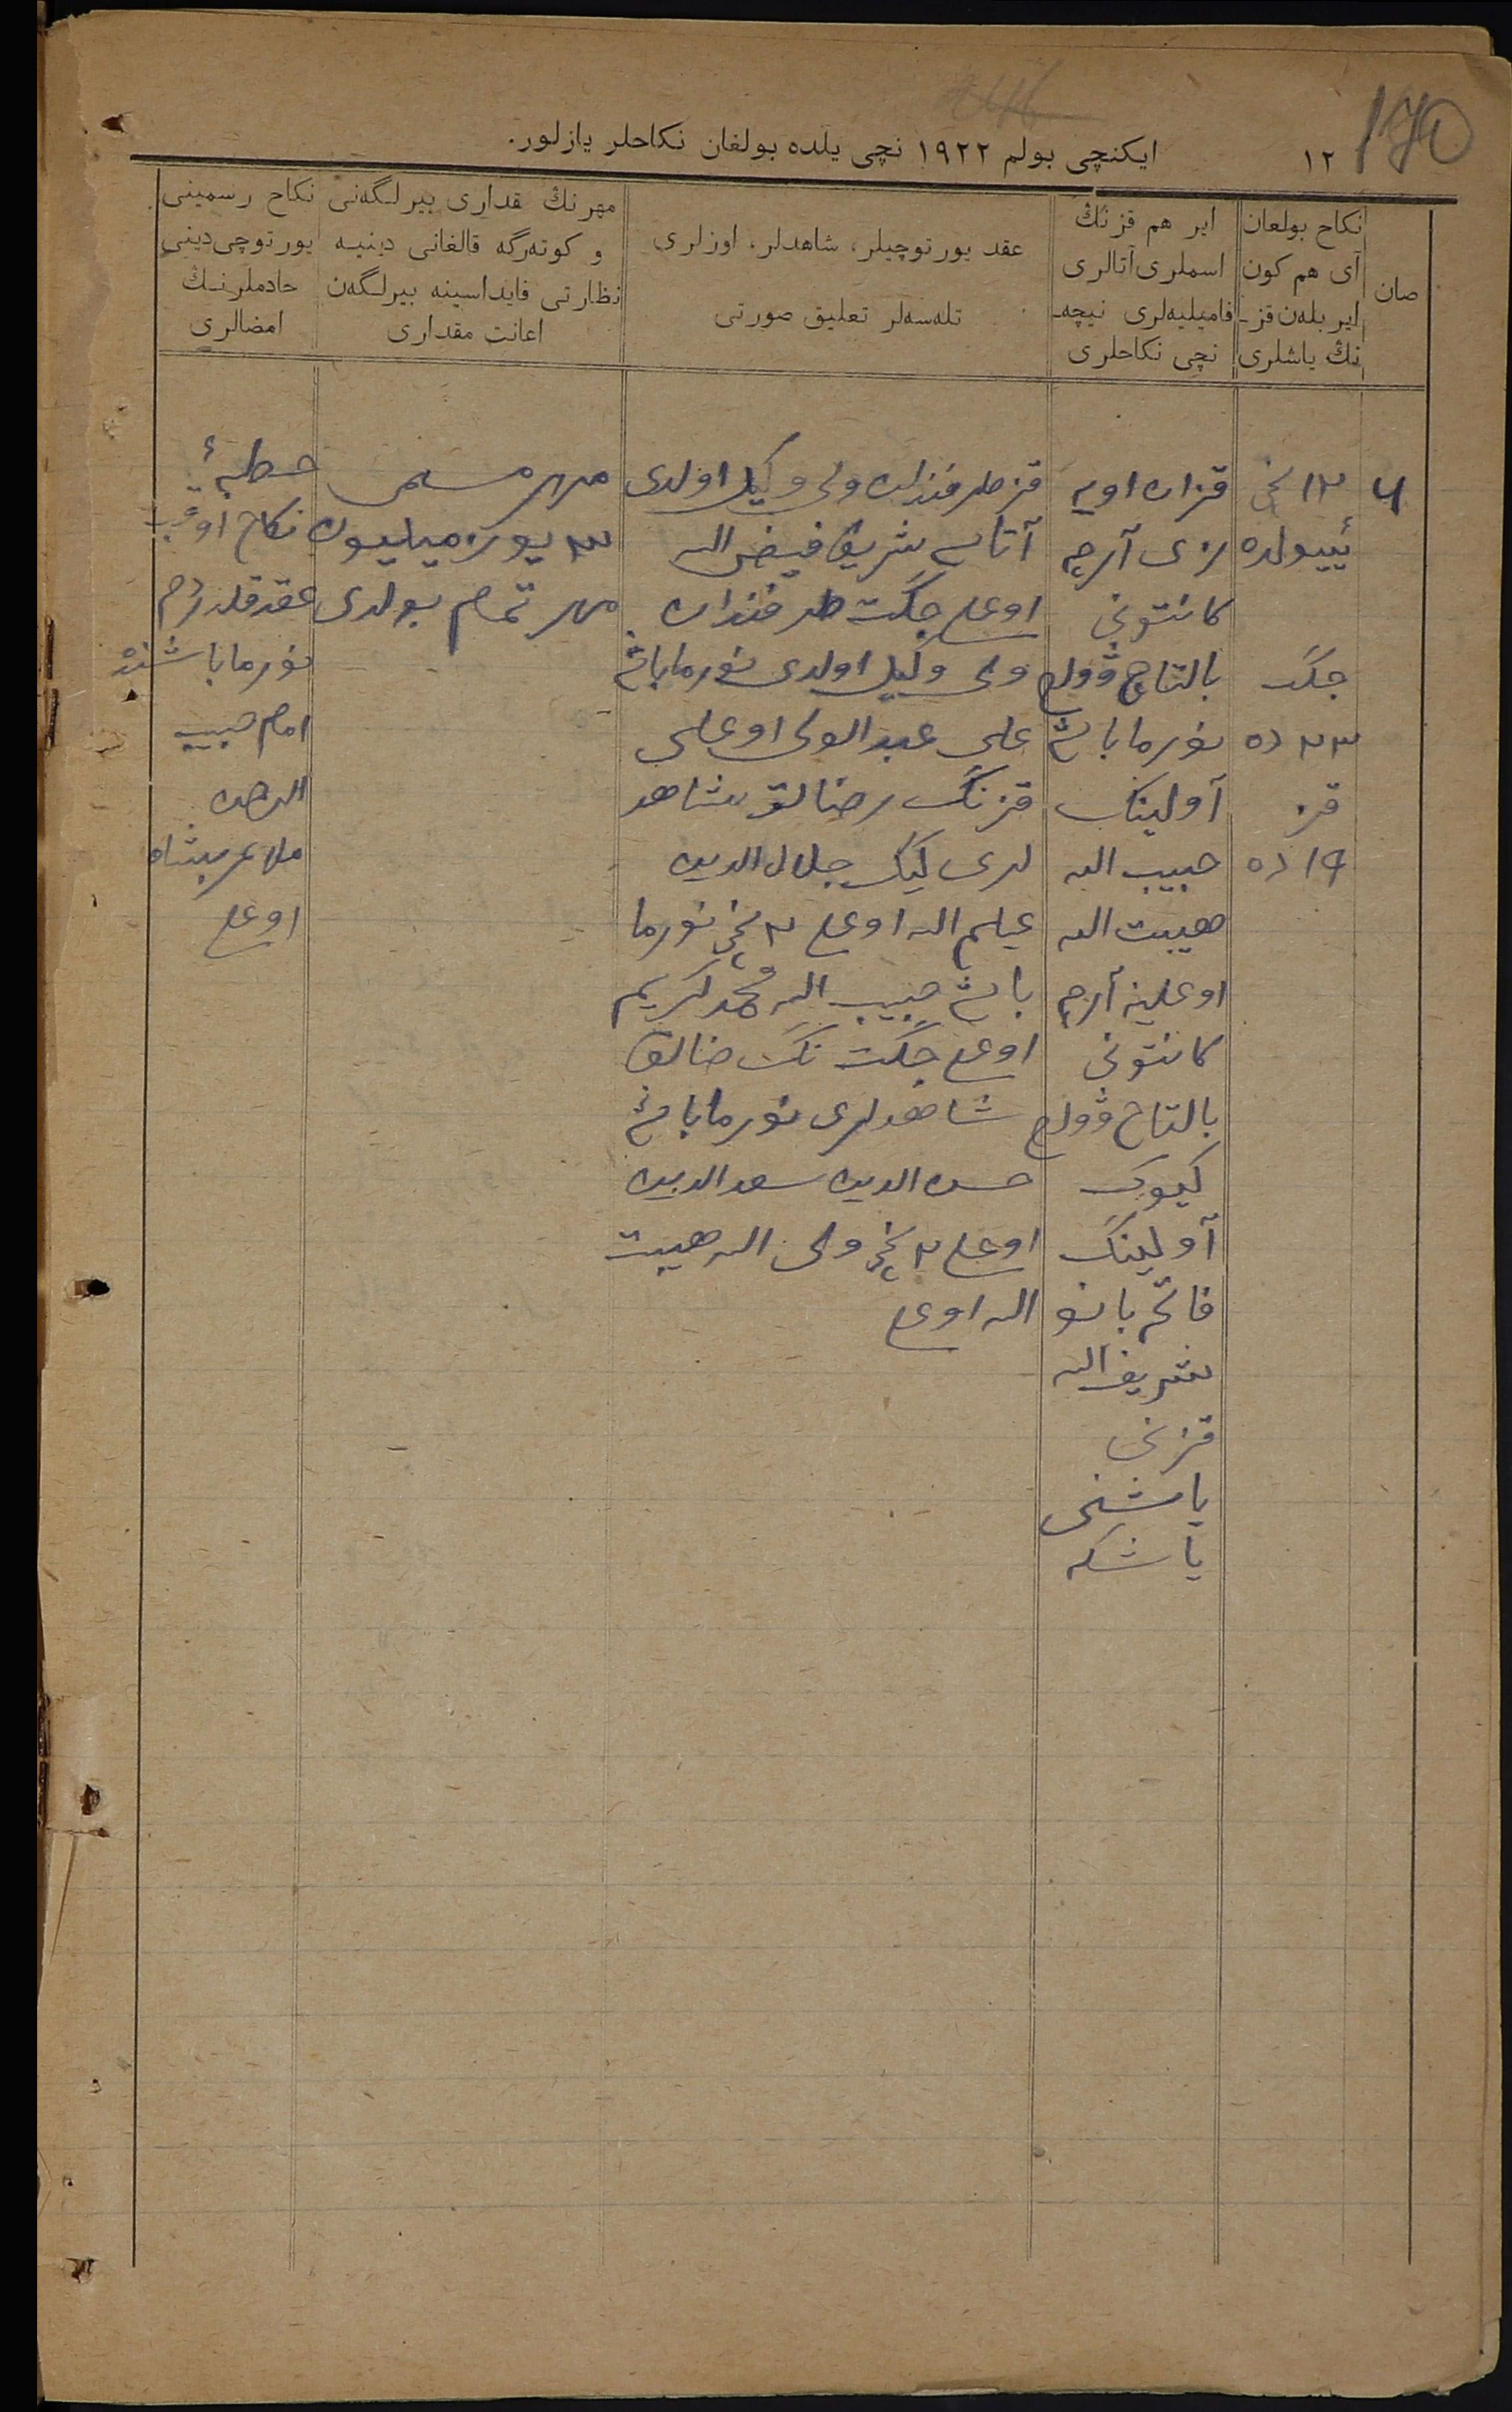 170
١٢
ايكنچی بولم ١٩٢٢ نچی يلده بولغان نكاحلر يازلور.
صان
نكاح بولغان
آی هم كون
اير بلەن قز-
نڭ ياشلری
اير هم قز نڭ
اسملری آتالری
فاميليەلری نيچه-
نچی نكاحلری
عقد يورتوچيلر، شاهدلر، اوزلری
تلەسەلر تعليق صورتی
مهر نڭ مقداری بيرلگەنی
و كوتەرگه قالغانی دينيه
نظارتی فايداسينه بيرلگەن
اعانت مقداری
نكاح رسمينی
يورتوچی دينی
خادملر نڭ
امضالری
١٣ نچی
ييولده
جگت
٢٣ ده
قز
١٩ ده
قزان اويه
زی آرچه
كانتونی
بالتاچ ۋولص
نورما باش
آولينك
حبيب الله
هيبت الله
اوغلينه آرچه
كانتونی
بالتاچ ۋولص
كيوك
آولينك
فائم بانو
شريف الله
قزنی
ياشنی
ياشكه
قز طرفندان ولی وكيل اولدی
آتاسی شريف فيض الله
اوغلی جگت طرفندان
ولی وكيل اولدی نورما باش
علی عبد الولی اوغلی
قزنك رضالق شاهد
لری كيك جلال الدين
عليم الله اوغلی ٢ نچی نورما
باش حبيب الله محمد كريم
اوغلی جگت نك رضالق
شاهدلری نورما باش
حسن الدين سعد الدين
اوغلی ٢ نچی ولی الله هيبت
الله اوغلی
مهر مسمی
٣ يوز ميليون
مهر تمام بولدی
خطبهٔ
نكاح اوقوب
عقد قلدردم
نورما باشنڭ
امام حبيب
الرحمن
ملا عربشاه
اوغلی